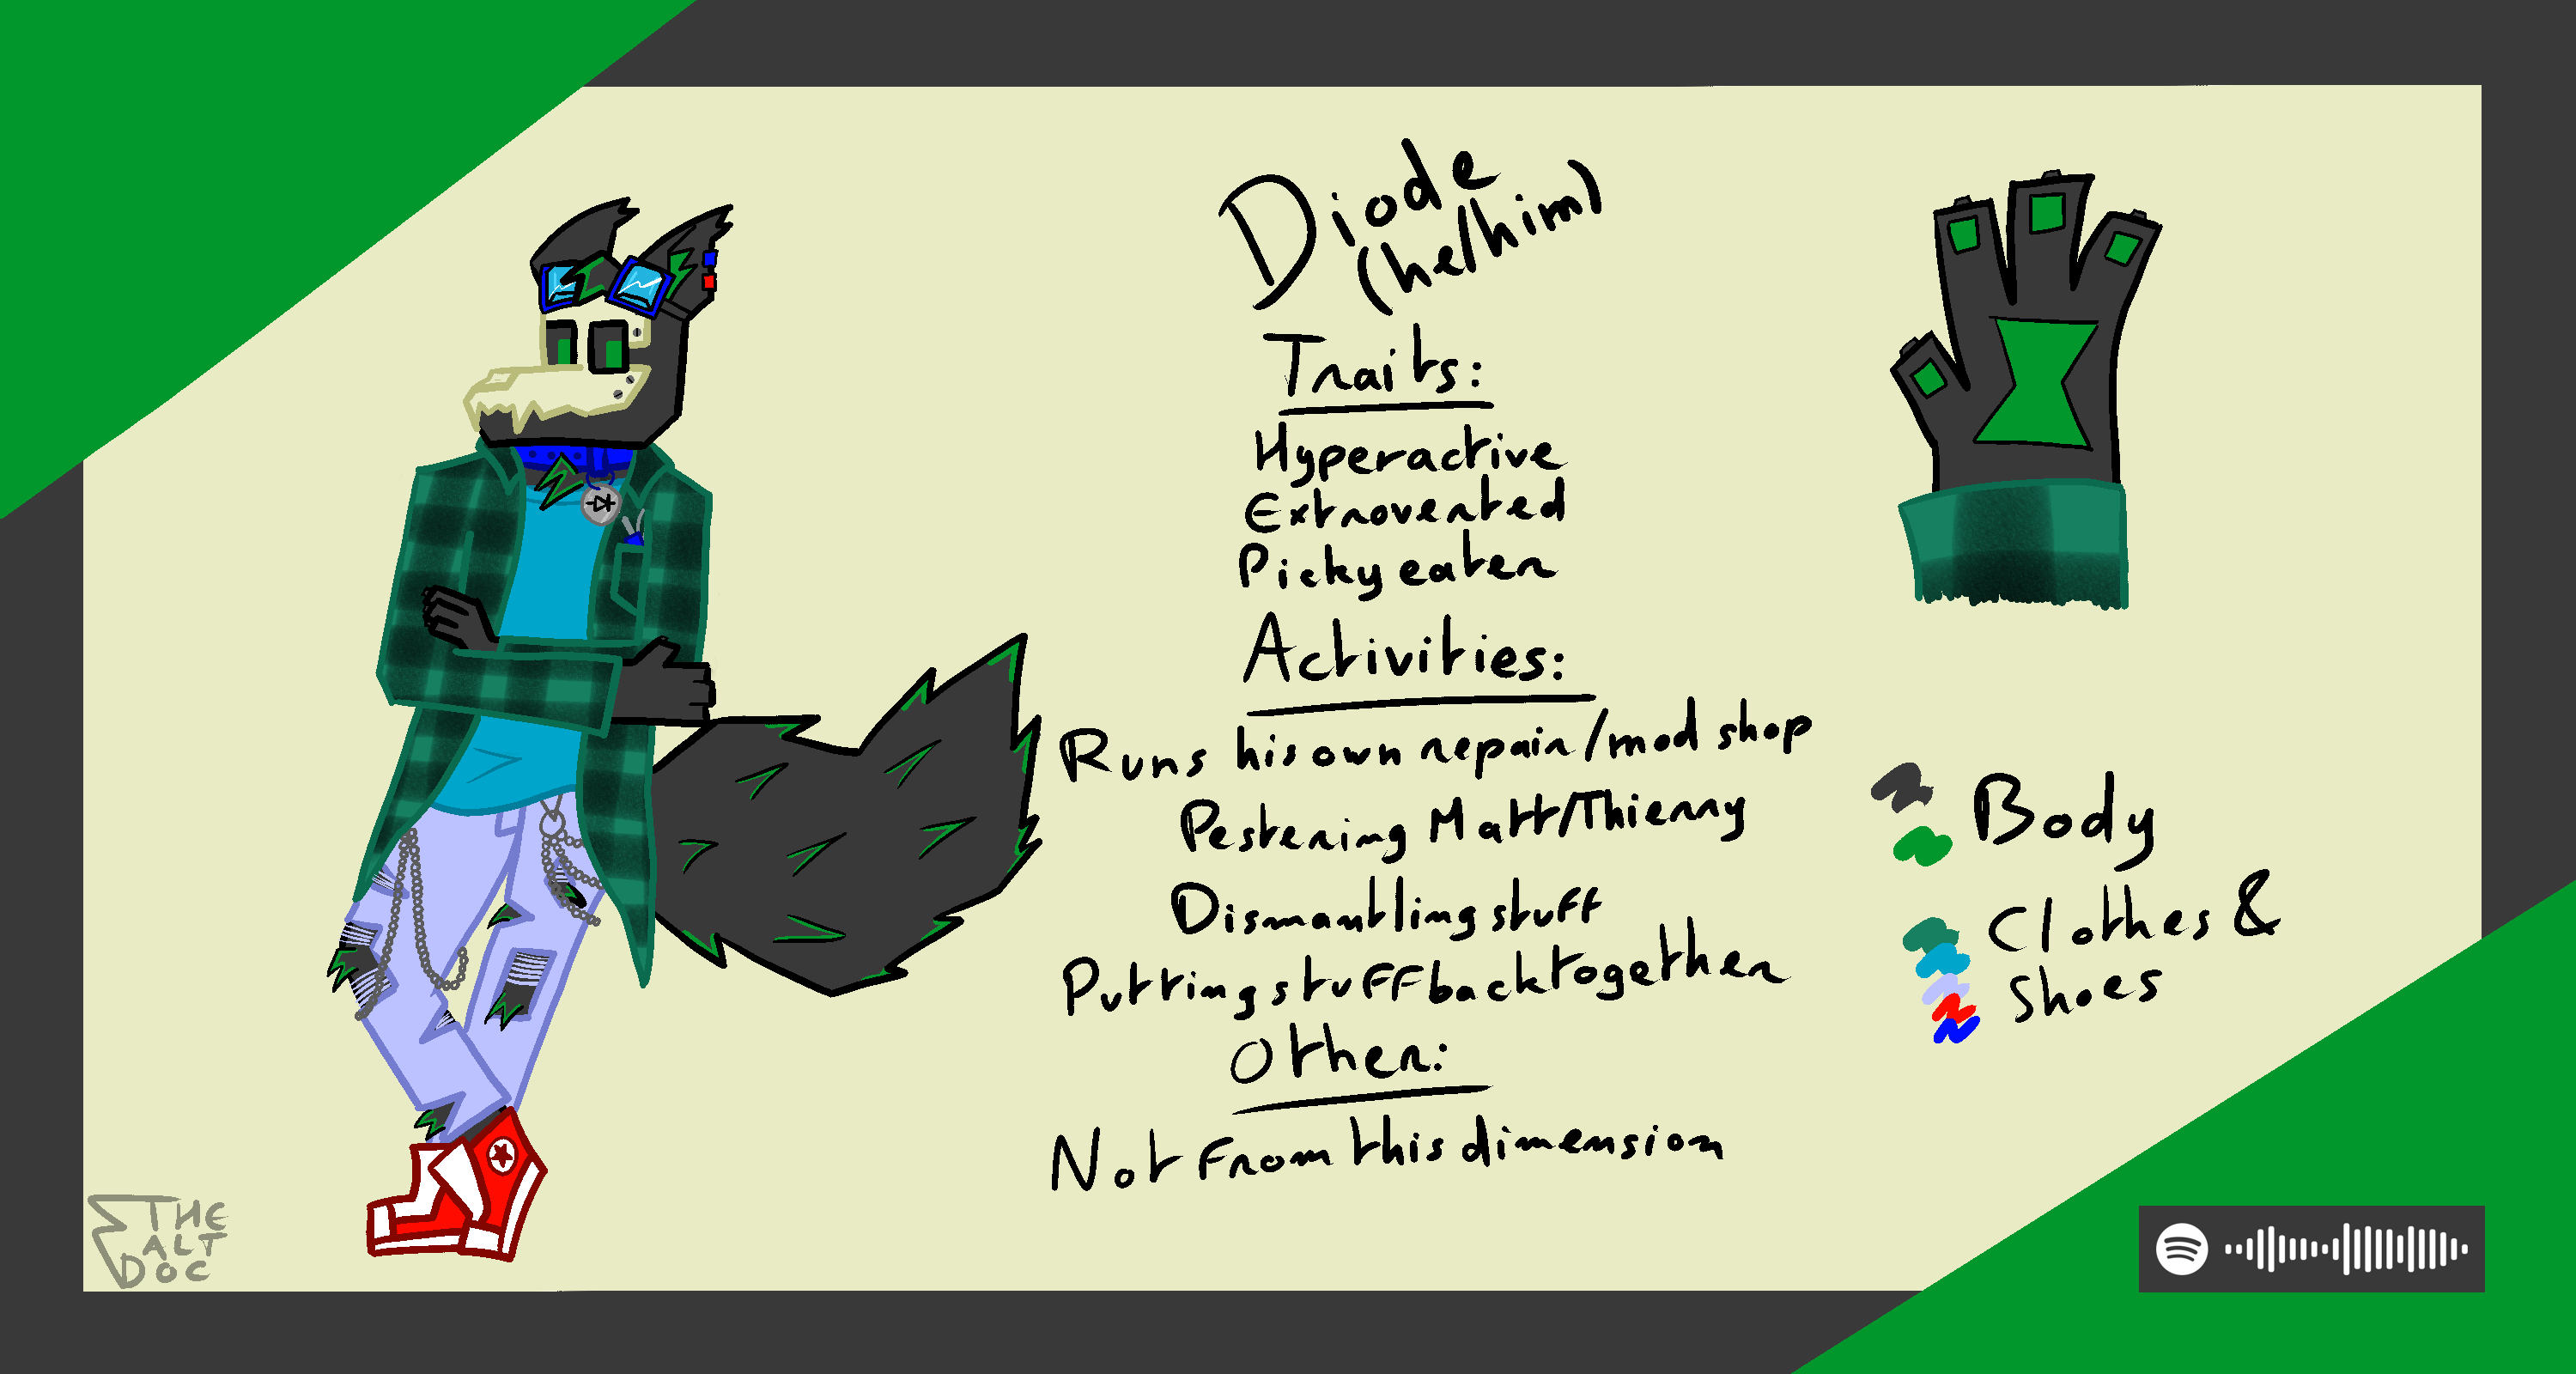 Diode
(he/him)
Traits:
Hyperactive
Extroverted
Picky eater
Activities:
Runs his own repair/mod shop
Pestering Matt/Thierry
Dismantling stuff
Putting stuff back together
Other:
Not from this dimension
Body
Clothes &
Shoes
THE
ALT
DOC